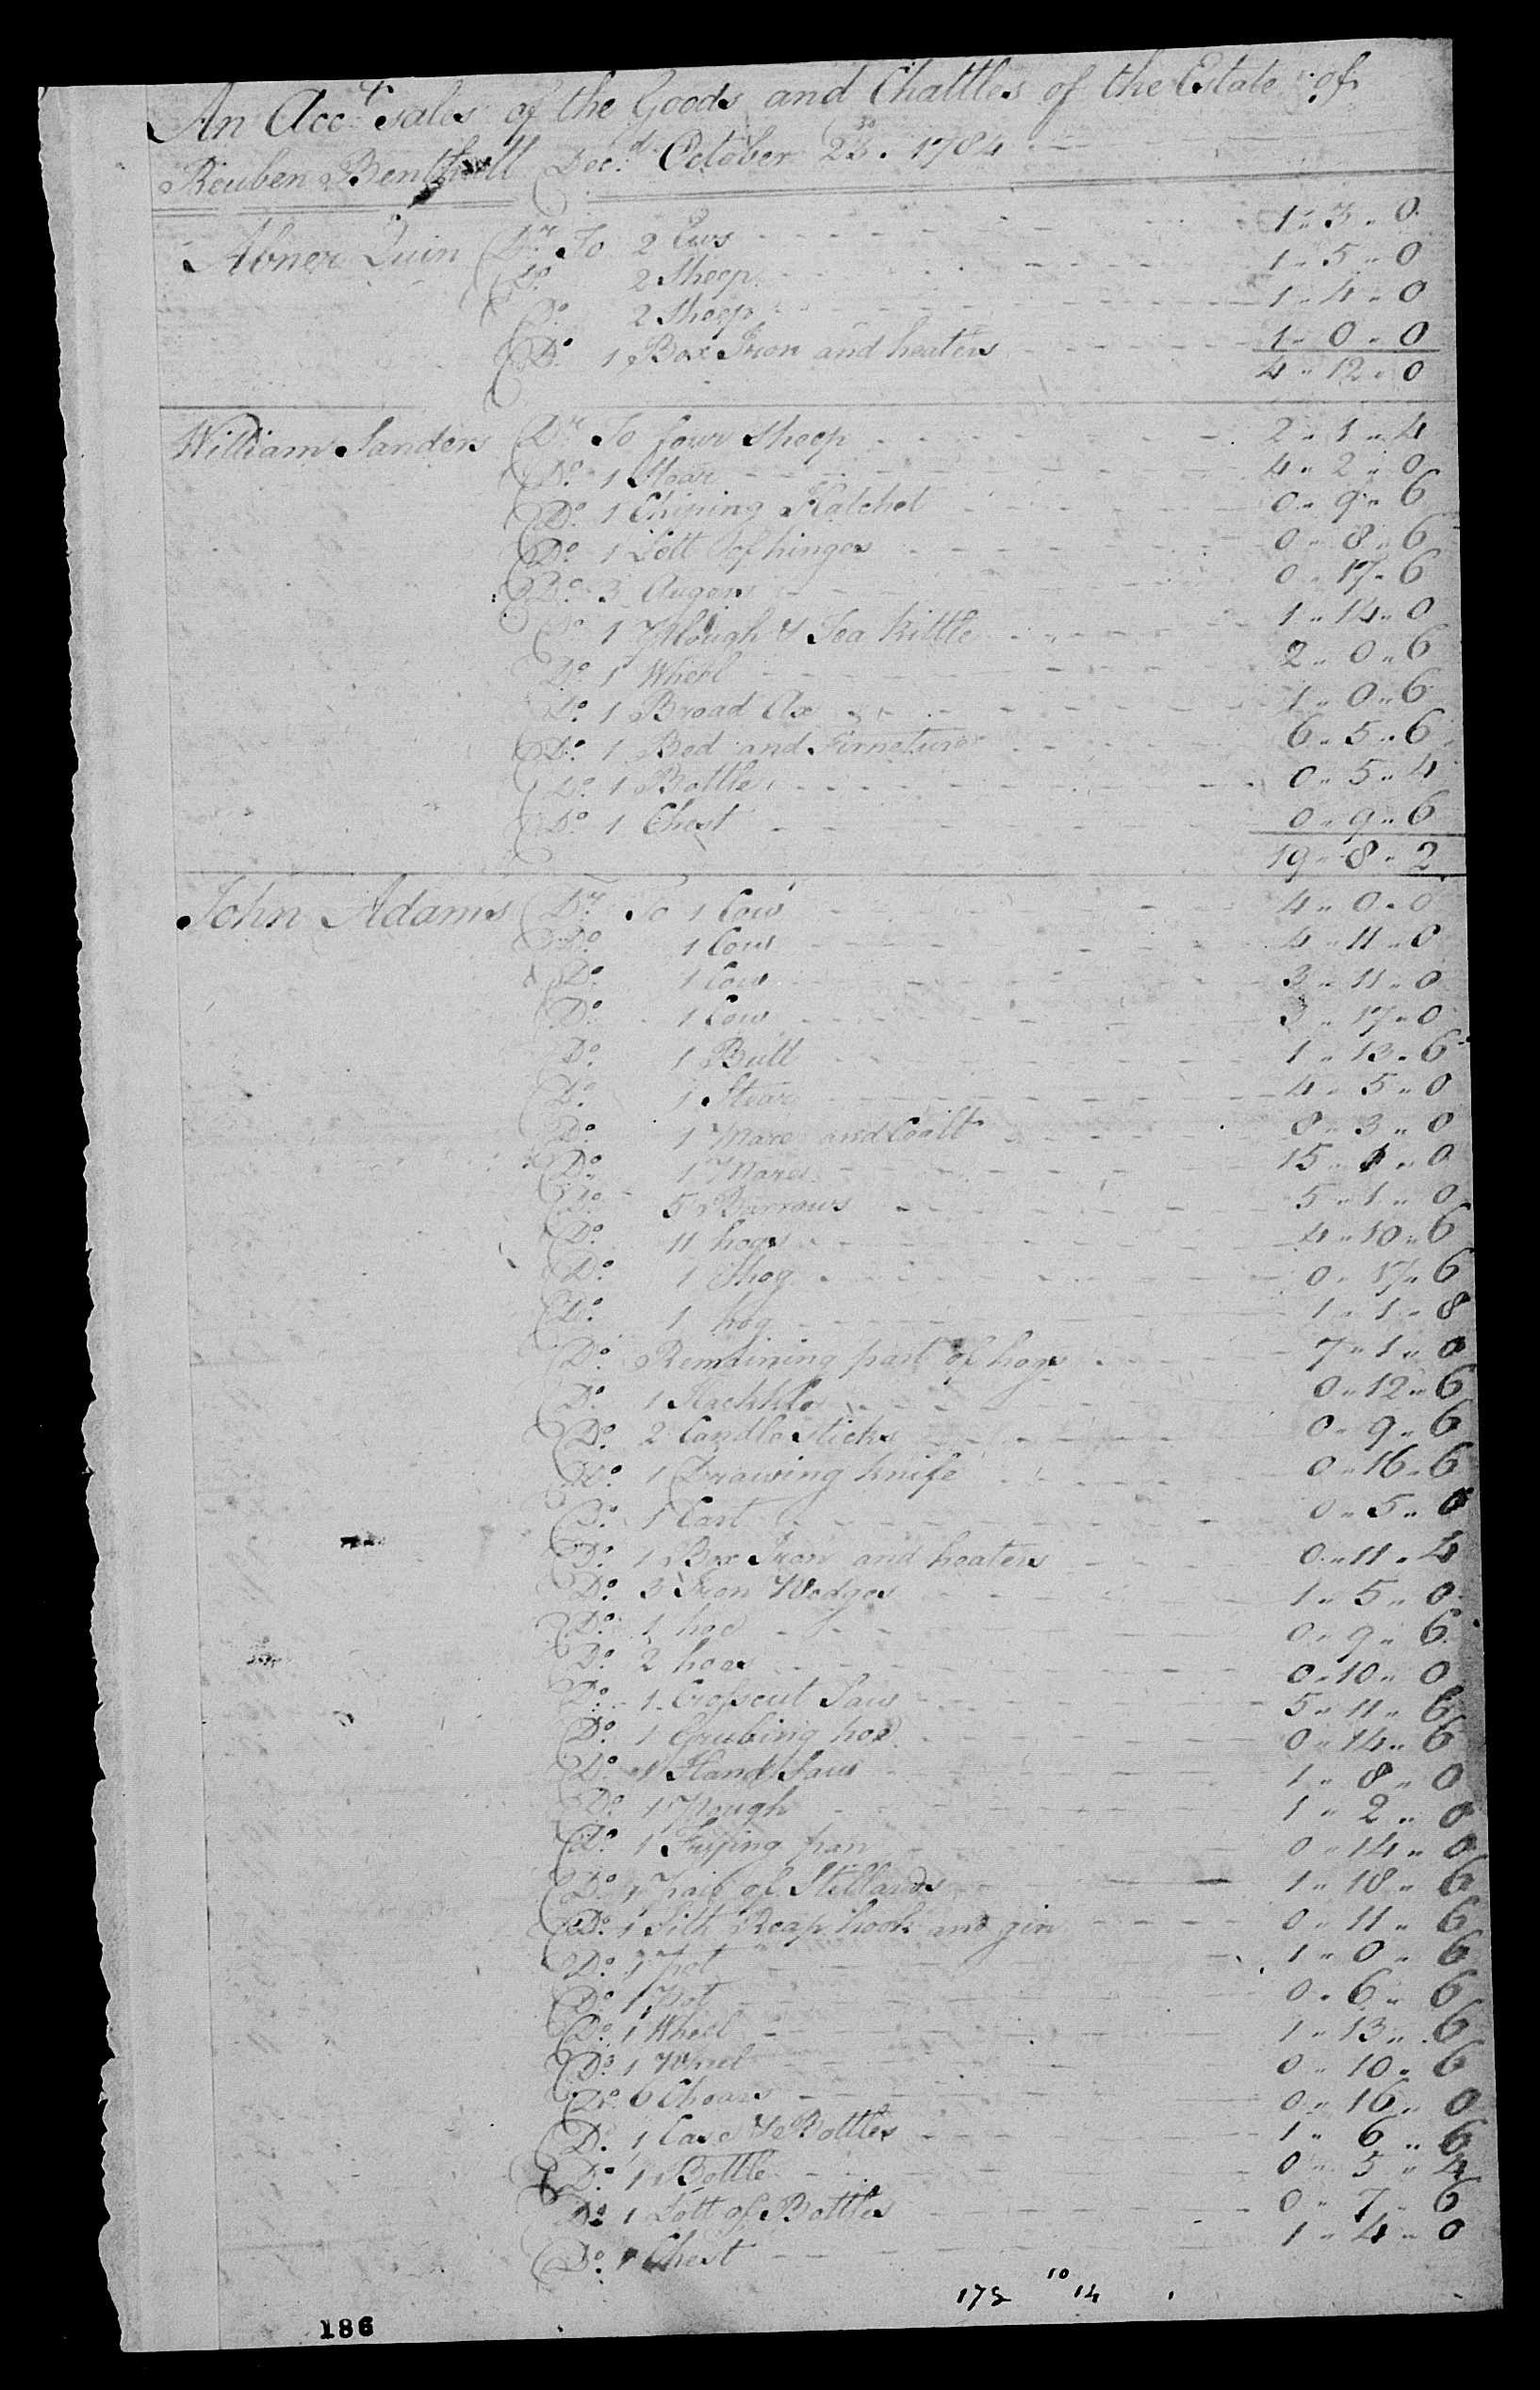 An Acct. sales of the Goods and Chattles of the Estate of
Reuben Decd. October 23d. 1784
Abner Quin Dr. To 2 Ews 1 " 3 " 0
Do. 2 Sheep 1 " 5 " 0
Do. 2 Sheep 1 " 4 " 0
Do. 1 Box Iron and heaters 1 " 0 " 0
4 " 12 " 0
William Sanders Dr. To four Sheep 2 " 1 " 4
Do. 1 Stear 4 " 2 " 0
Do. 1 Chining Hatchet 0 " 9 " 6
Do. 1 Lott of hinges 0 " 8 " 6
Do. 3 Augars 0 " 17 " 6
Do 1 Plough & Tea Kittle 1 " 14 " 0
Do. 1 Wheel 2 " 0 " 6
Do. 1 Broad Ax 1 " 0 " 6
Do. 1 Bed and Furneture 6 " 5 " 6
Do. 1 Bottle 0 " 5 " 4
Do. 1 Chest 0 " 9 " 6
19 " 8 " 2
John Adams Dr. To 1 Cow 4 " 0 " 0
Do. 1 Cow 4 " 11 " 0
Do. 1 Cow 3 " 11 " 0
Do. 1 Cow 3 " 17 " 0
Do. 1 Bull 1 " 13 " 6
Do. 1 Stear 4 " 5 " 0
Do. 1 Mare and Coalt 8 " 3 " 0
Do. 1 Mare 15 " 1 " 0
Do. 5 Barrows 5 " 1 " 0
Do. 11 hogs 4 " 10 " 6
Do. 1 Shog 0 " 17 " 6
Do. 1 hog 1 " 1 " 8
Do. Remaining part of hogs 7 " 1 " 0
Do. 1 0 " 12 " 6
Do. 2 Candle sticks 0 " 9 " 6
Do. 1 Drawing knife 0 " 16 " 6
Do. 1 Cart 0 " 5 " 0
Do. 1 Box Iron and heaters 0 " 11 " 4
Do. 3 Iron Wedges 1 " 5 " 0
Do. 1 hoe 0 " 9 " 6
Do. 2 hoes 0 " 10 " 0
Do. 1 Crosscut Saw 5 " 11 " 6
Do. 1 Grubing hoe 0 " 14 " 6
Do. 1 Hand Saw 1 " 8 " 0
Do. 1 Plough 1 " 2 " 0
Do. 1 Frying pan 0 " 14 " 0
Do. 1 pair of Stillards 1 " 18 " 6
Do. 1 Sith Reap hook and gin 0 " 11 " 6
Do. 1 pot 1 " 0 " 6
Do. 1 Pot 0 " 6 " 6
Do. 1 Wheel 1 " 13 " 6
Do. 1 Wheel 0 " 10 " 6
Do. 6 Chears 0 " 16 " 0
Do. 1 Case & Bottles 1 " 6 " 6
Do. 1 Bottle 0 " 5 " 4
Do 1 Lott of Bottles 0 " 7 " 6
Do. 1 Chest 1 " 4 " 0
10 14
186